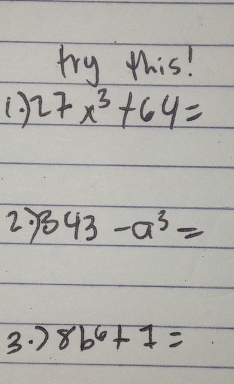 try this!
1.) 27x³ + 64 =
2.) 343 - a³ =
3.) 8b⁶ + 1 =